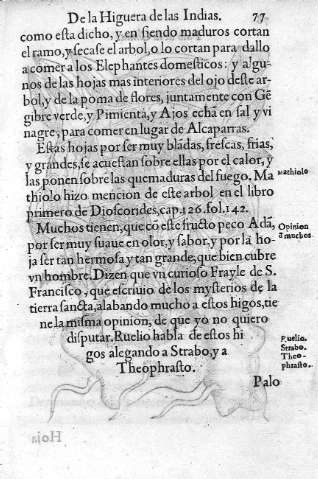 De la Higuera de las Indias. 77
como esta dicho, y en siendo maduros cortan
el ramo, y secase el arbol, o lo cortan para dallo
a comer a los Elephantes domesticos: y algu-
nos de las hojas mas interiores del ojo deste ar-
bol, y de la poma de flores, juntamente con Gẽ
gibre verde, y Pimienta, y Ajos echã en sal y vi
nagre, para comer en lugar de Alcaparras.
Estas hojas por ser muy blãdas, frescas, frias,
y grandes, se acuestan sobre ellas por el calor, y
las ponen sobre las quemaduras del fuego. Ma
thiolo hizo mencion de este arbol en el libro
primero de Dioscorides, cap.126. fol.142.
Mathiolo
Muchos tienen, que cõ este fructo peco Adã,
por ser muy suaue en olor, y sabor, y por la ho-
ja ser tan hermosa y tan grande, que bien cubre
vn hombre. Dizen que vn curioso Frayle de S.
Francisco, que escriuio de los mysterios de la
tierra sancta, alabando mucho a estos higos, tie
ne la misma opinion, de que yo no quiero
disputar. Ruelio habla de estos hi
gos alegando a Strabo, y a
Theophrasto.
Opinion
d muchos.
Ruelio.
Strabo.
Theo-
phrasto.
Palo
Hoja